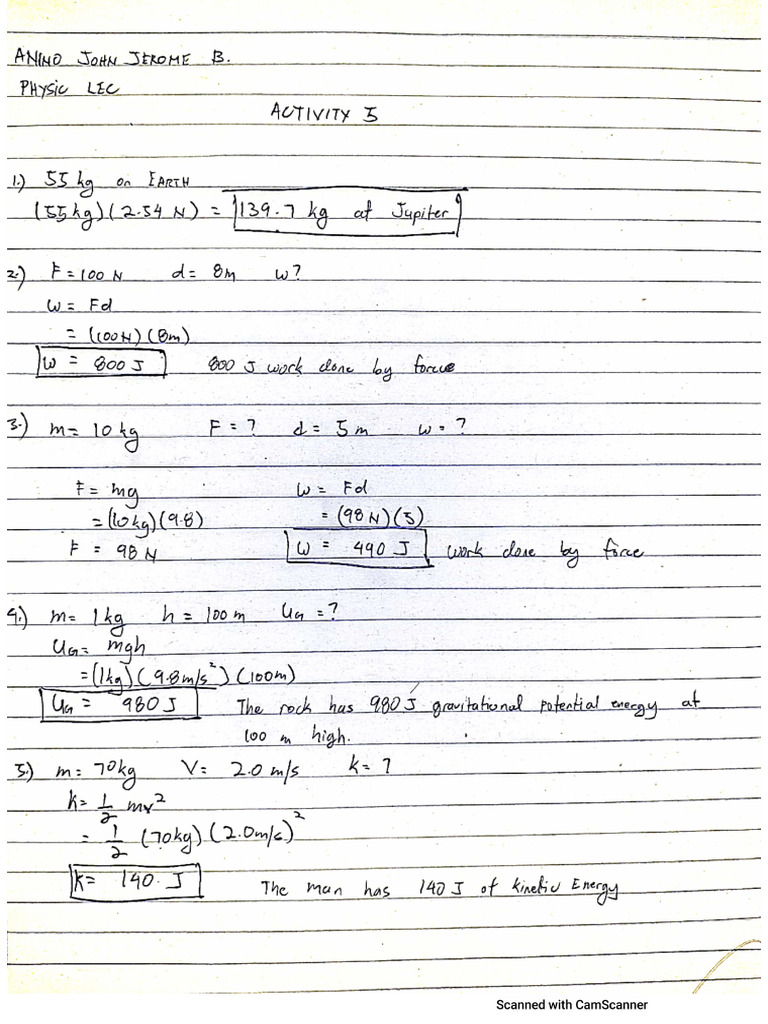 ANINO JOHN JEROME B.
PHYSIC LEC
ACTIVITY 5
1.) 55 kg on EARTH
(55kg)(2.54 N) = 139.7 kg at Jupiter
2.) F = 100 N d = 8m W?
W = Fd
= (100N)(8m)
W = 800 J 800 J work done by force
3.) m = 10 kg F = ? d = 5 m W = ?
F = mg W = Fd
= (10kg)(9.8) = (98 N)(5)
F = 98 N W = 490 J work done by force
4.) m = 1 kg h = 100 m UG = ?
UG = mgh
= (1kg)(9.8m/s²)(100m)
UG = 980 J The rock has 980 J gravitational potential energy at
100 m high.
5.) m = 70kg V = 2.0 m/s k = ?
k = 1/2 mv²
= 1/2 (70kg)(2.0m/s)²
k = 140. J The man has 140 J of kinetic Energy
Scanned with CamScanner